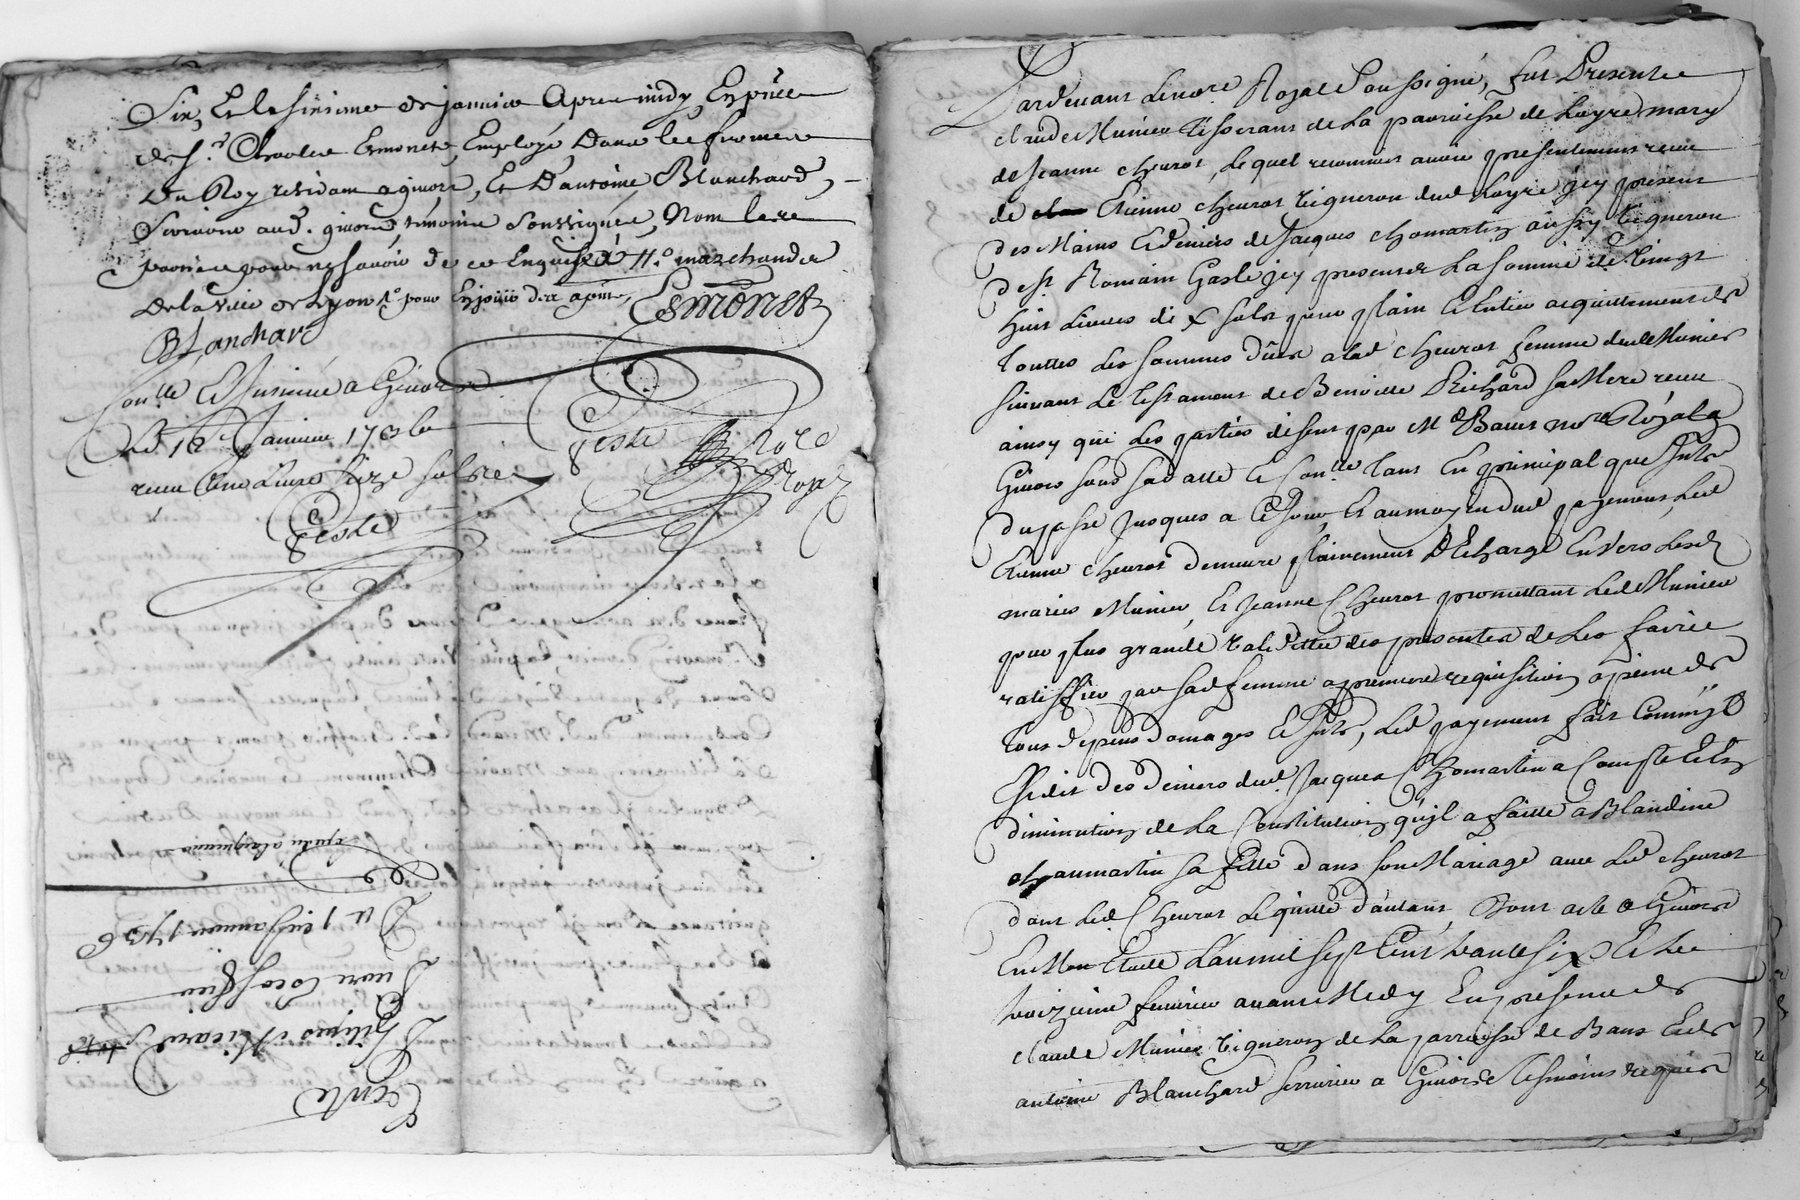 Six, Et le sixieme de janvier Apres midy En pñce
de sr. Charles Esmonet Employé Dans les fermes
Du Roy residant a givors, Et D'antoine Blanchard,
aud. givors temoins soussignés Non le
pour ne sçavoir de ce Enquis marchands
De la ville de Lyon
Esmonet
Blanchard
Conlle Et Insinué a Givors
Le 16e Janvier 1736
receu Une Livre seize sols
Geste
Geste
Nore
Royal
Pardevant Lenore Royal Soussigné, fut Present
claude Munier tisserant de La parroisse de Loyre mary
de Jeanne cheurot, Lequel reconnoit avoir presentement receu
de Etienne cheurot Vigneron dud Loyre icy present
des Mains Et deniers de Jacques chomartin aussy Vigneron
de st Romain Gasle icy present La somme de Vingt
huit Livres dix sols pour plain Et Entier acquittement de
touttes Les sommes düés a lad cheurot femme dud Munier
suivant Le testament de Benoitte Richard sa Mere receu
ainsy que Les parties disent par Me Bauer nore Royal a
Givors sous sa datte Et Conlle tant En principal que Intts
du passé jusques a ce jour, Et au moyen dud payement, Led
Etienne cheurot demeure plainement Décharge Envers Lesd
mariés Munier, Et Jeanne Cheurot promettant Led Munier
pour plus grande Validitté des presentes de Les faire
ratiffier par sad femme a premiere requisition a peine de
tous depens domages Et Intts, Led payement fait Comme
Est dit des deniers dud. Jacques Chomartin a Compte Et En
diminution de La Constitution qu'il a faitte a Blandine
chaumartin sa fille dans son Mariage avec Led cheurot
dont Led Cheurot Le quitte d'autant, Dont acte a Givors
En Mon Etude L'an mil sept Cent trante six Et Le
troizieme fevrier avant Midy En presence de
claude Munier Vigneron de La parroisse de Bans Et de
antoine Blanchard serrurier a Givors Tesmoins requis
Du 1er Janvier 1736
Philipes Micard
Vente